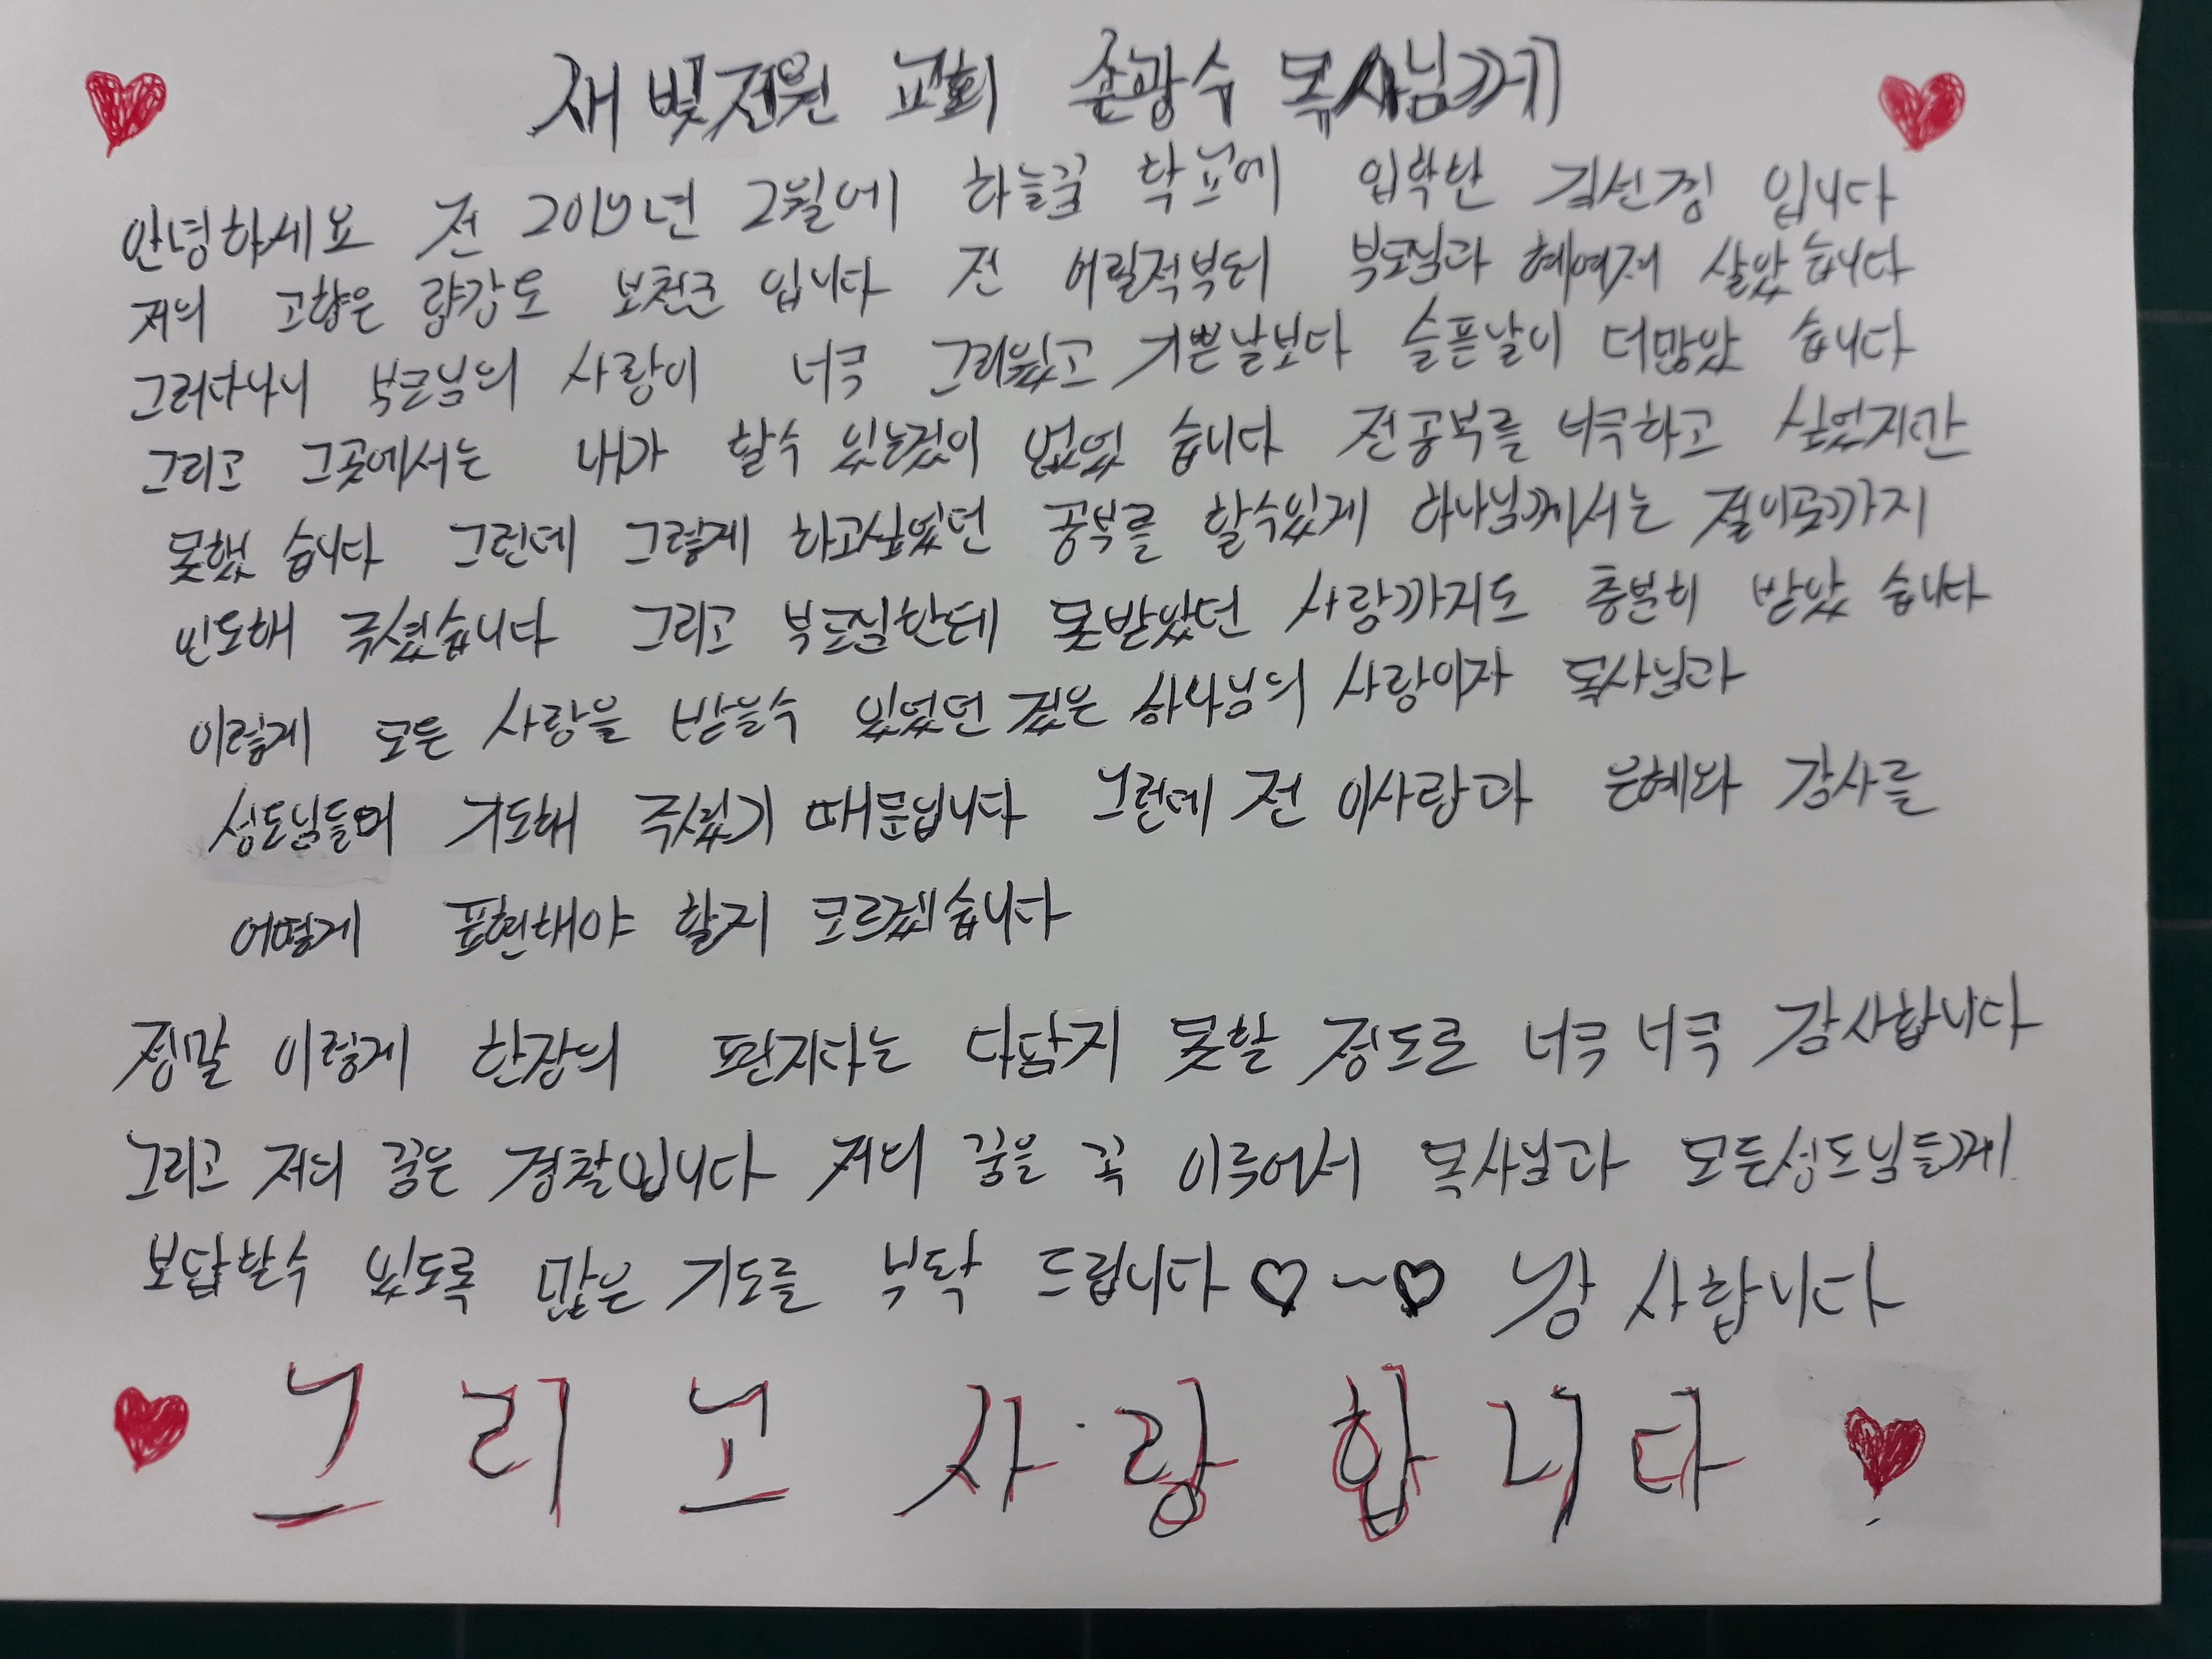 새빛전원 교회 손광수 목사님께
안녕하세요 전 2019년 2월에 하늘꿈 학교에 입학한 김선정 입니다
저의 고향은 량강도 보천군 입니다 전 어릴적부터 부모님과 헤여져 살았습니다
그러다나니 부모님의 사랑이 너무 그리웠고 기쁜날보다 슬픈날이 더많았 습니다
그리고 그곳에서는 내가 할수 있는것이 없었 습니다 전공부를 너무하고 싶었지만
못했 습니다 그런데 그렇게 하고싶었던 공부를 할수있게 하나님께서는 절이곳까지
인도해 주셨습니다 그리고 부모님한테 못받았던 사랑까지도 충분히 받았 습니다
이렇게 모든 사랑을 받을수 있었던 것은 하나님의 사랑이자 목사님과
성도님들이 기도해 주셨기 때문입니다 그런데 전 이사랑과 은혜와 감사를
어떻게 표현해야 할지 모르겠습니다
정말 이렇게 한장의 편지다는 다담지 못할 정도로 너무 너무 감사합니다
그리고 저의 꿈은 경찰입니다 저의 꿈을 꼭 이루어서 목사님과 모든성도님들께
보답할수 있도록 많은 기도를 부탁 드립니다 ♡~♡ 감 사합니다
그 리 고 사 랑 합 니 다